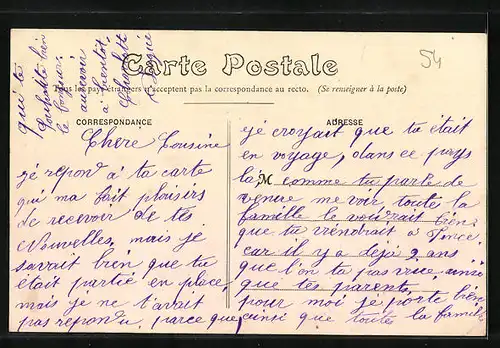 Carte Postale
Tous les pays étrangers n'acceptent pas la correspondance au recto. (Se renseigner à la poste)
54
CORRESPONDANCE
ADRESSE
M
Chere Cousine
je repond a ta carte
qui ma fait plaisirs
de recevoir de tes
Nouvelles, mais je
savait bien que tu
était partie en place,
mais je ne t'avait
pas repondu, parce que
je croyait que tu était
en voyage, dans ce pays
la comme tu parle de
venire me voir, toute la
famille le voudrait bien
que tu viendrait a
car il y a déjà 2 ans
que l'on ta pas vue ainsi
que tes parents,
pour moi je porte bien
ainsi que toute la famille
qui te
Souhaite bien
le bonjour
au revoir
a bientôt